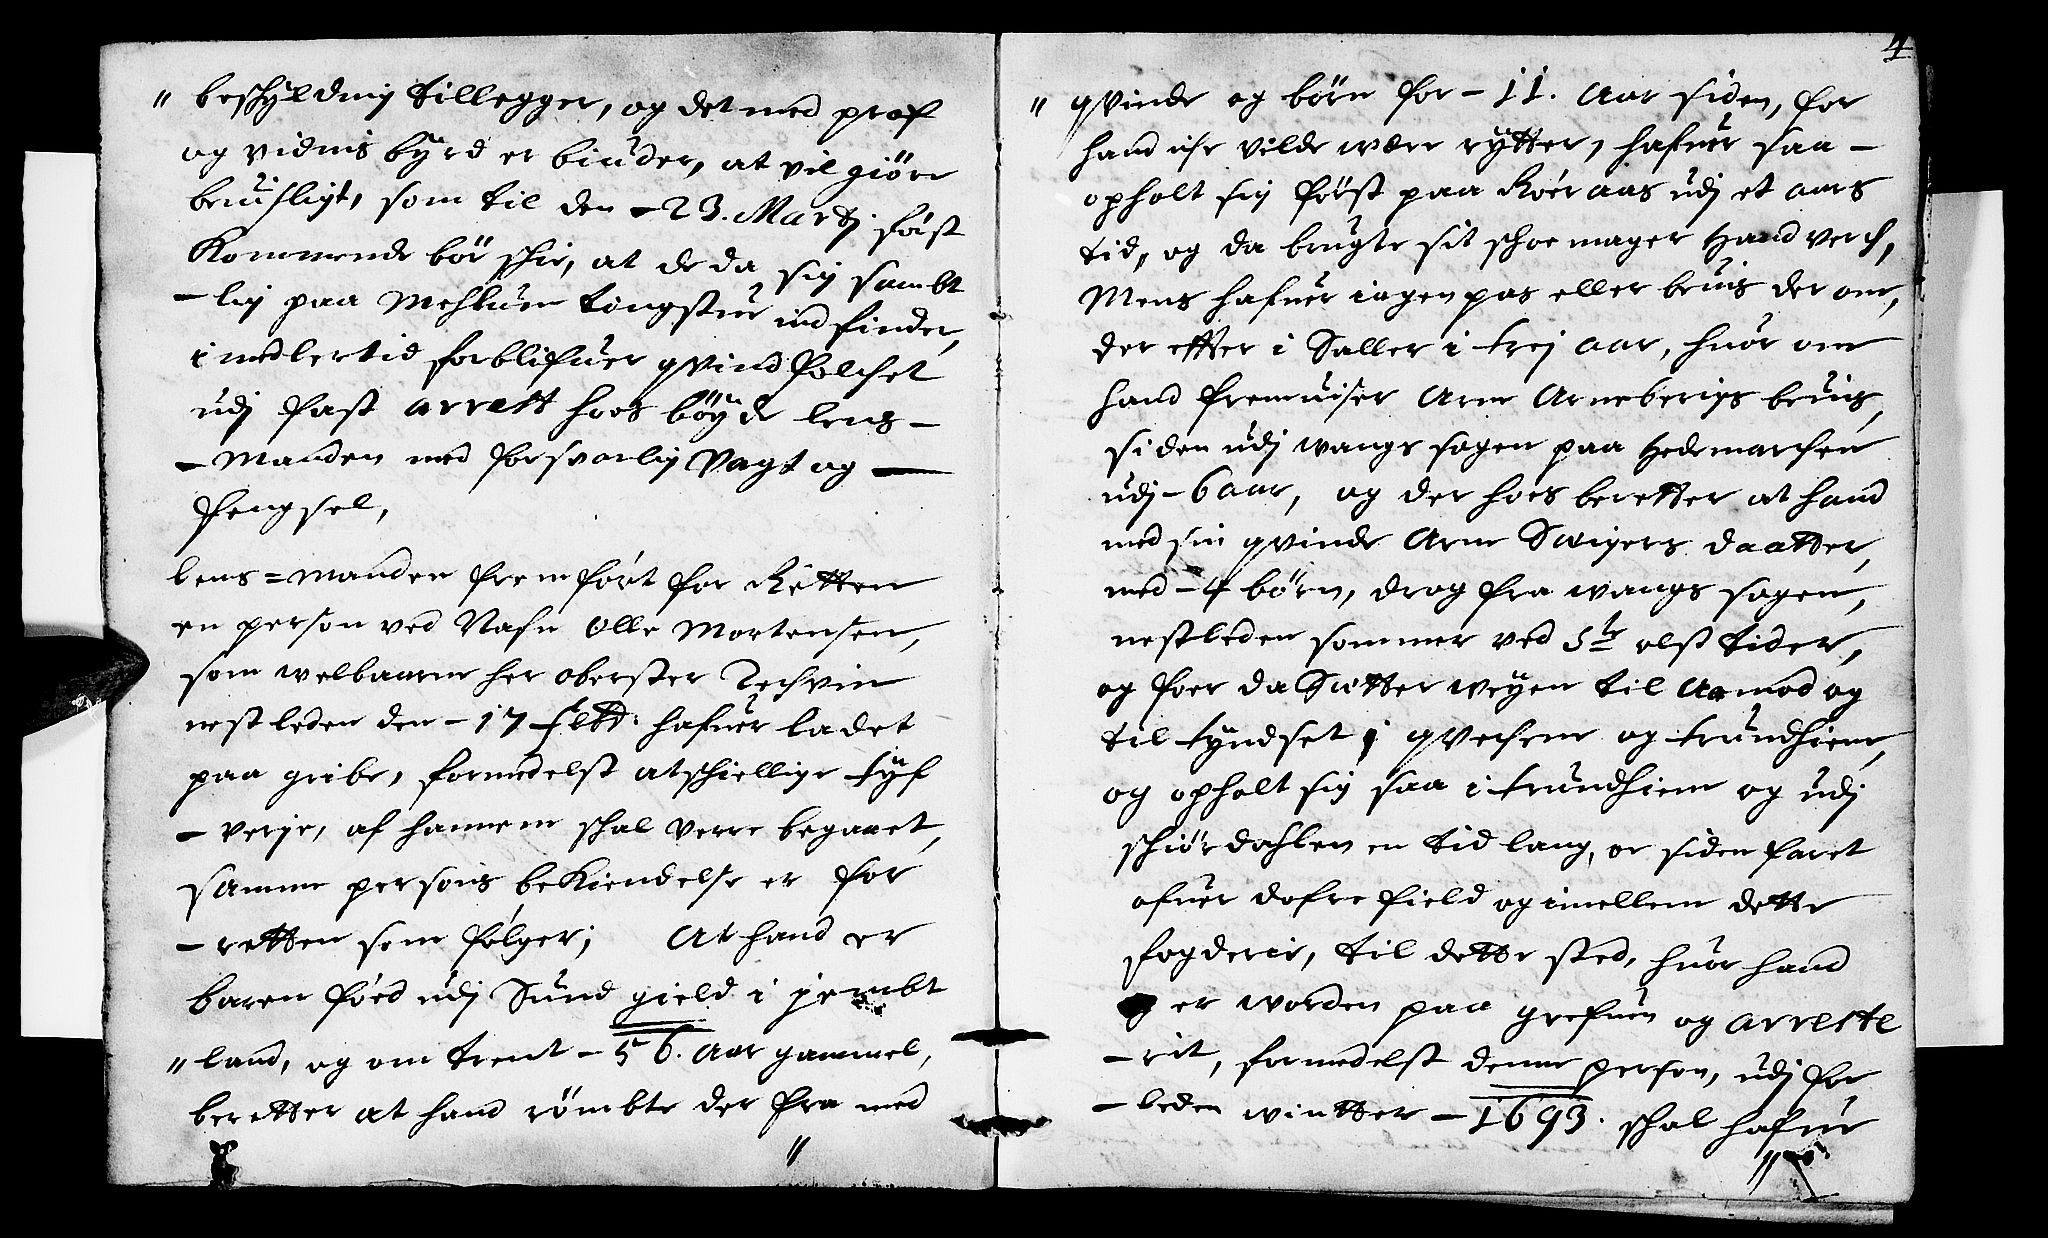 " beschÿldnig tillegger, og det med prof
og vidnis bÿrd er biuder, at vil giöre
beuisligt, som til den - 23. Martj først
Kommende bör schie, at de da sig sambt
- lig paa Mehlum tingstue ind finder,
imedlertid forblifuer qvindfolchet
udj fast arrest hoes böyde lens -
- Manden med forsvarlig Vagt og —
fengsel,
Lens = Manden fremfört for Retten
en person ved Nafn Olle Mortensen,
som welbaarne her oberster
nestleden den - 17 hafuer ladet
paa gribe, formedelst atschiellige tÿf
- verje, af hannem schal verre begaaet,
samme persons beKiendelse er for
- retten som følger; At hand er
baaren föed udj Sund gield i jembt
" land, og om trent - 56. aar gammel,
beretter at hand römbte der fra med
"
4
" qvinde og börn for - 11. aar siden, for
hand icke vilde være rÿtter, hafuer saa -
opholt sig först paa Röeraas udj et aars
tid, og da brugte sit schoemager Handverch,
Mens hafuer ingen pas eller beuis der om,
der effter i Saller i trej aar, huor om
hand fremuiser Arne Arnebergs beuis,
siden udj wangs sogen paa Hedemarchen
udj - 6 aar, og der hoes beretter at hand
med sin qvinde Arne daatter,
med - 4 börn, drog fra wangs sogen,
nestleden sommer ved St: olss tider,
og foer da Sætter weyen til Aamod og
til tÿndset i qvechne og trundhiem,
og opholt sig saa i trundhiem og udj
schiördahlen en tid lang, oc siden faret
ofuer dofrefield og imellem dette
fogderie, til dette sted, huor hand
er worden paa grefuen og arreste
- rit, formedelst denne person, udj for
- leden wintter - 1693. schal hafue
"